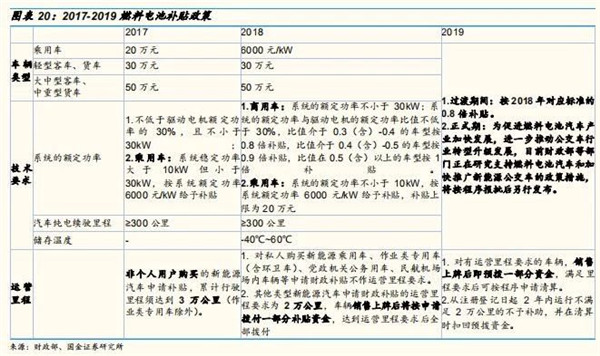 图表 20：2017-2019 燃料电池补贴政策
2017
2018
2019
车辆
类型
乘用车
20 万元
6000 元/kW
轻型客车、货车
30 万元
30 万元
大中型客车、
中重型货车
50 万元
50 万元
技术
要求
系统的额定功率
1.不低于驱动电机额定功
率的 30%，且不小于
30kW；
2.乘用车：系统稳定功率
大于 10kW 但小于
30kW，按系统额定功率
6000元/kW 给予补贴
1.商用车：系统的额定功率不小于 30kW；系
统的额定功率与驱动电机的额定功率比值不低
于 30%，比值介于 0.3（含）-0.4 的车型按
0.8 倍补贴，比值介于 0.4（含）-0.5 的车型按
0.9 倍补贴，比值在 0.5（含）以上的车型按 1
倍补贴。
2.乘用车：系统的额定功率不小于 10kW，按
系统额定功率 6000元/kW 给予补贴，补贴上
限为 20 万元
汽车纯电续驶里程
≥300 公里
≥300公里
储存温度
-
-40℃~60℃
1.过渡期间：按 2018 年对应标准的
0.8 倍补贴。
2.正式期：为促进燃料电池汽车产
业加快发展，进一步推动公交车行
业转型升级发展，目前财政部等部
门正在研究支持燃料电池汽车和加
快推广新能源公交车的政策措施，
将按程序报批后另行发布。
运营
里程
非个人用户购买的新能源
汽车申请补贴，累计行驶
里程须达到 3 万公里（作
业类专用车除外）。
1. 对私人购买新能源乘用车、作业类专用车
（含环卫车）、党政机关公务用车、民航机场
场内车辆等申请财政补贴不作运营里程要求。
2. 其他类型新能源汽车申请财政补贴的运营里
程要求为 2 万公里，车辆销售上牌后将按申请
拨付一部分补贴资金，达到运营里程要求后全
部拨付
1. 对有运营里程要求的车辆，销售
上牌后即预拨一部分资金，满足里
程要求后可按程序申请清算。
2.从注册登记日起 2 年内运行不满
足 2 万公里的不予补助，并在清算
时扣回预拨资金。
来源：财政部、国金证券研究所